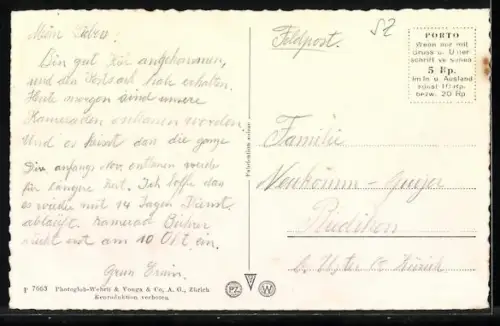 Mein Lieben!
Bin gut hier angekommen,
und den Postsack hab erhalten.
Heute morgen sind unsere
Kameraden entlassen worden
Und es heisst das die ganze
Div anfangs Nov. entlassen werde
für längere Zeit. Ich hoffe das
es wieder mit 14 Tagen Dienst
abläuft. Kamerad Bührer
rückt erst am 10 Okt. ein.
Gruss Erwin.
P 7663 Photoglob-Wehrli & Vouga & Co, A. G., Zürich
Reproduktion verboten.
Fabrication suisse
PZ W
Feldpost.
SZ
PORTO
Wenn nur mit
Gruss u. Unter
schrift versehen
5 Rp.
im In u. Ausland
sonst 10 Rp.
bezw. 20 Rp
Familie
Neukomm-Gujer
Riedikon
b. Uster Ct. Zürich